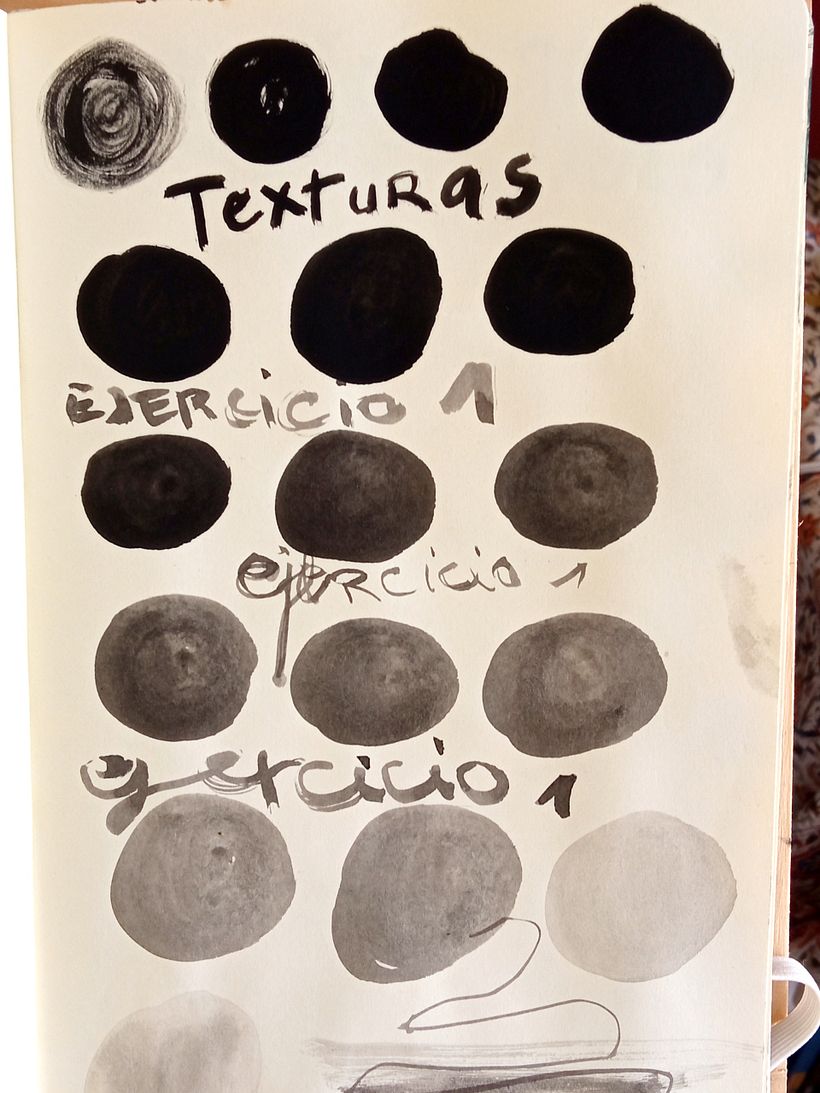 Texturas
EJERcicio 1
ejeRcicio 1
ejercicio 1